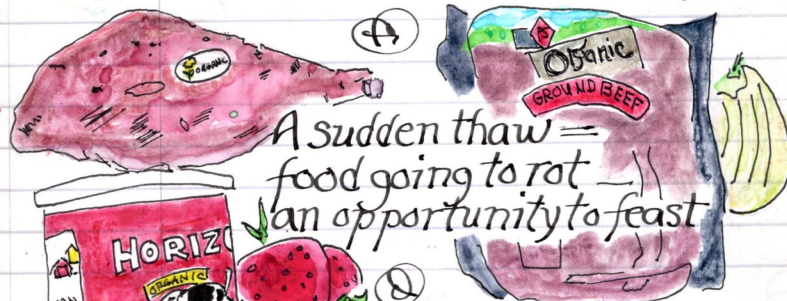 ORGANIC
Organic
GROUND BEEF
A sudden thaw —
food going to rot —
an opportunity to feast
HORIZ
ORGANIC